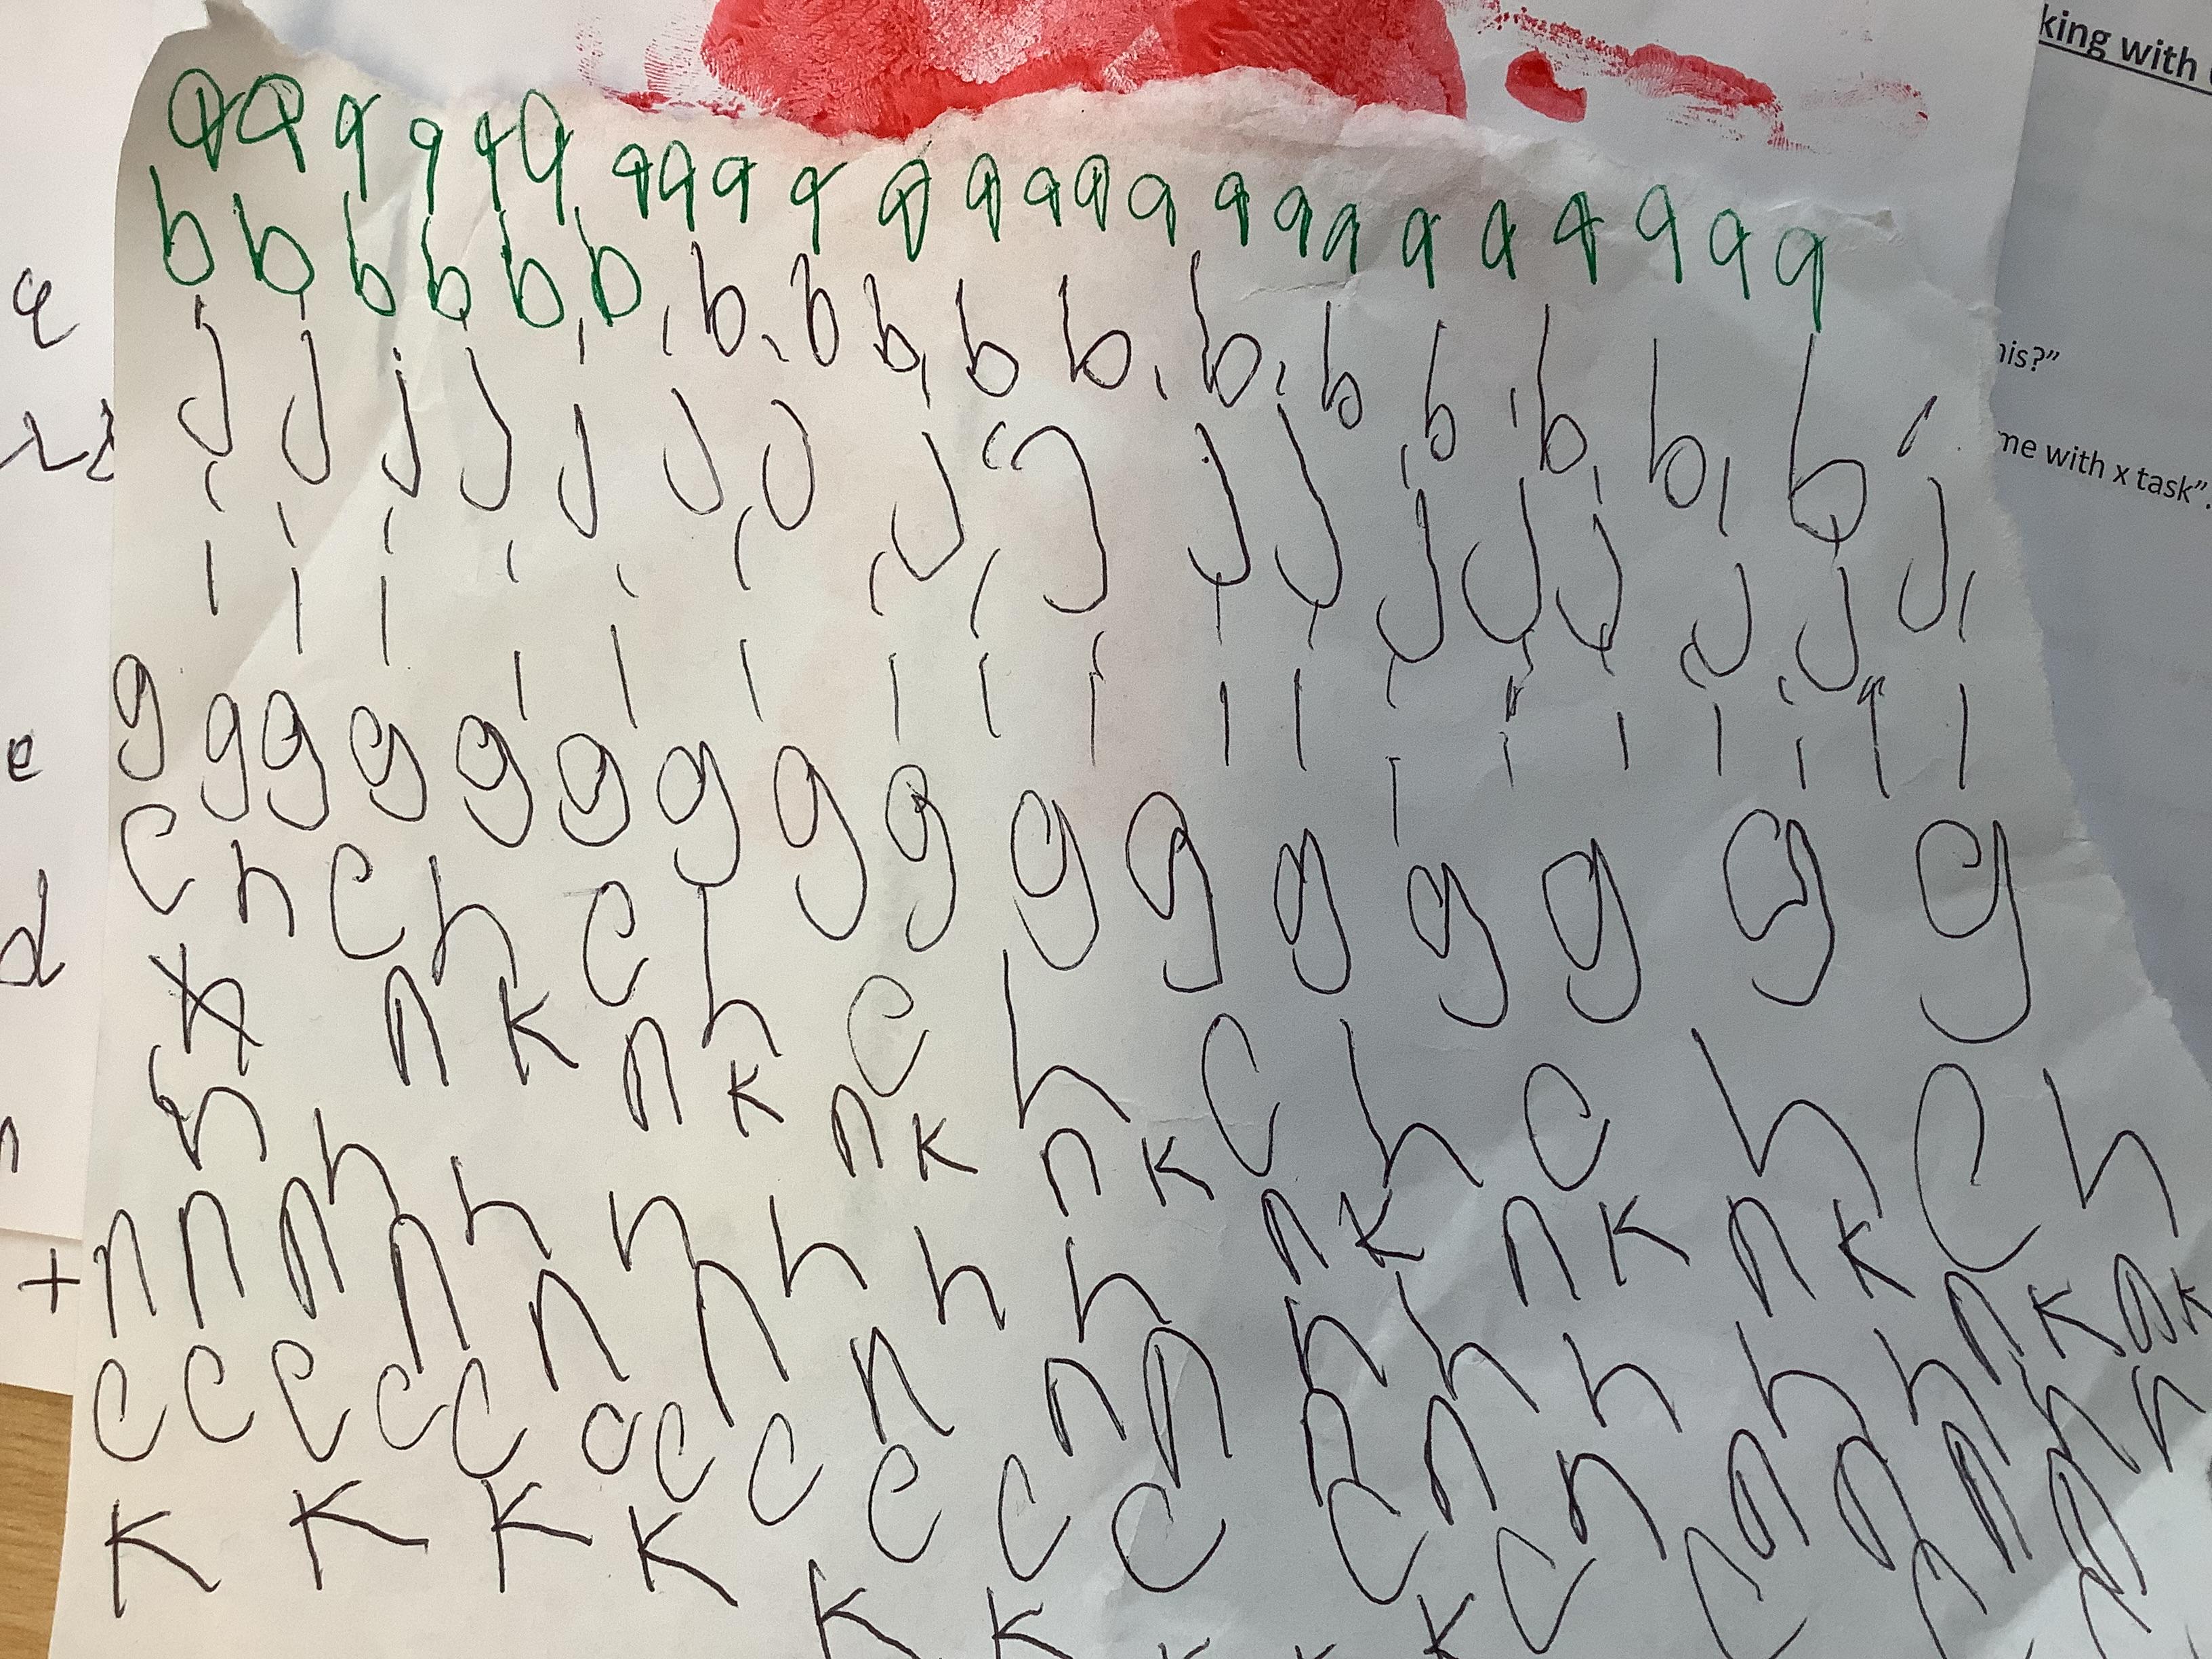 king with
q q q q q q q q q q q q q q q q q q q q q q q q
b b b b b b b b b b b b b b b b b b b
his?"
me with x task".
j j j j j j j j j j j j j j j j j
i i i i i i i i i i i i i i i i i i
g g g g g g g g g g g g g g g g
c h c h c h c h c h c h c h
n k n k n k n k n k n k n k n k n k
h h h h h h h h h h h h h h
n n n n n n n n n n n n n n n n
c c c c c c c c c c c c c c c c
k k k k k k k
e
d